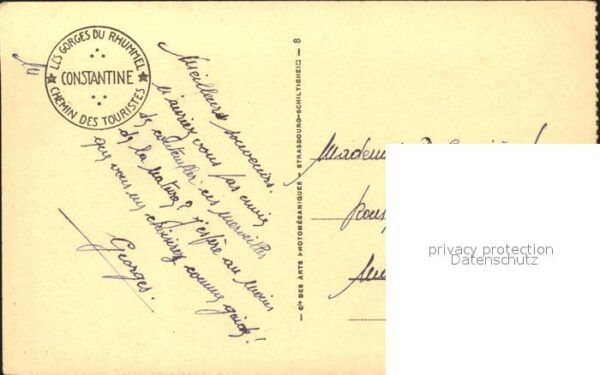 LES GORGES DU RHUMMEL
CONSTANTINE
CHEMIN DES TOURISTES
Meilleurs souvenirs.
N'auriez vous pas envie
de contempler ces merveilles
de la Nature? J'espère au moins
que vous me choisirez comme guide!
Georges.
— Cie DES ARTS PHOTOMÉCANIQUES - STRASBOURG-SCHILTIGHEIM — 8
privacy protection
Datenschutz